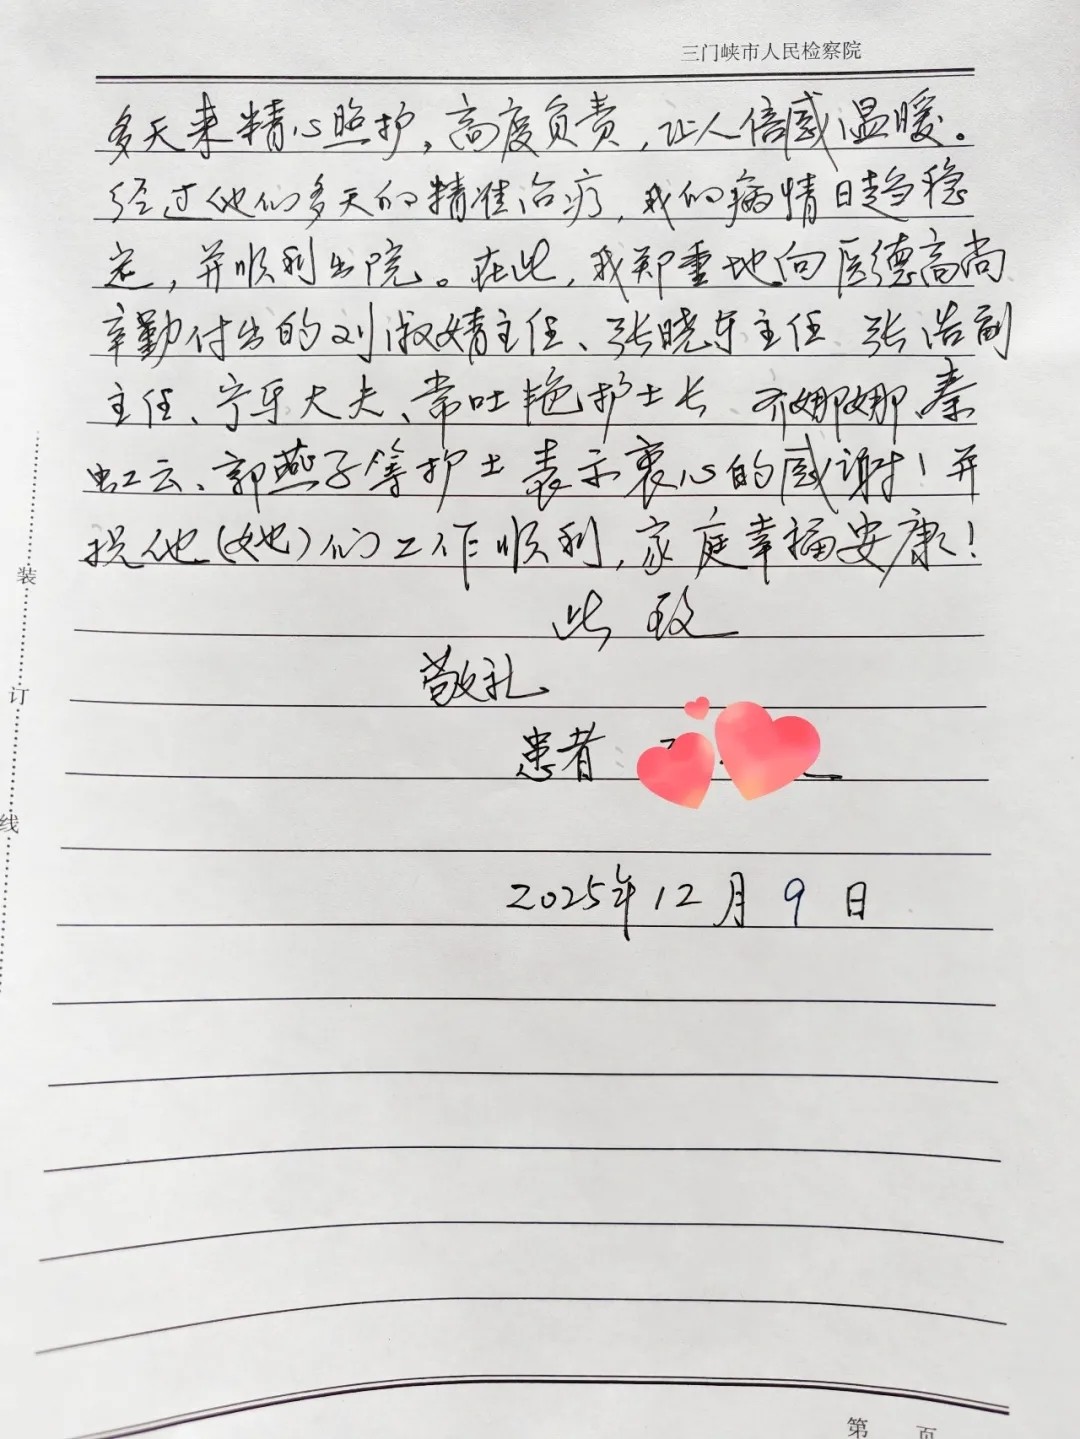 三门峡市人民检察院
多天来精心照护，高度负责，让人倍感温暖。
经过他们多天的精准治疗，我的病情日趋稳
定，并顺利出院。在此，我郑重地向医德高尚
辛勤付出的刘淑婧主任、张晓东主任 张浩副
主任、宁平大夫、常吐艳护士长 齐娜娜、秦
虹云、郭燕子等护士表示衷心的感谢！并
祝他（她）们工作顺利，家庭幸福安康！
此致
敬礼
患者
2025年12月9日
装
订
线
第 页